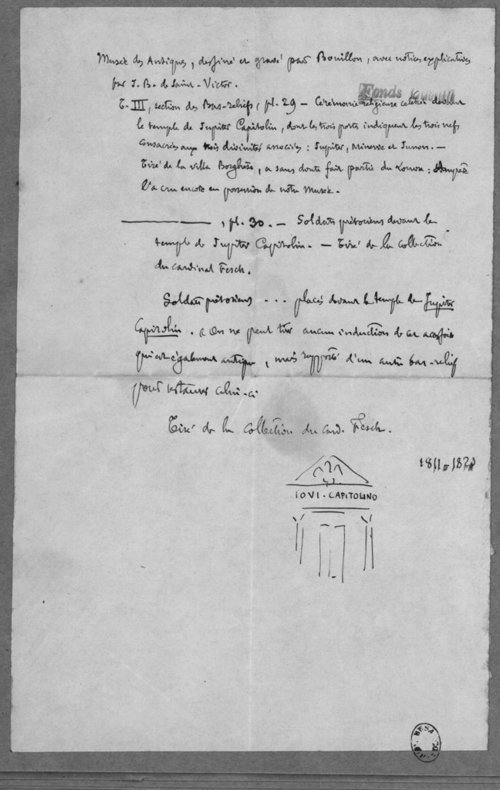 Musée des Antiques, dessiné et gravé par Bouillon, avec notices explicatives
par J. B. de Saint-Victor.
Fonds
T. III, section des Bas-reliefs, pl. 29 — Cérémonie religieuse devant
le temple de Jupiter Capitolin, dont les trois portes indiquent les trois nefs
consacrées aux trois divinités associées : Jupiter, Minerve et Junon. —
Tiré de la villa Borghèse, a sans doute fait partie du
l'a cru encore en possession de notre Musée.
, pl. 30. — Soldats prétoriens devant le
temple de Jupiter Capitolin. — Tiré de la collection
du cardinal Fesch.
Soldats prétoriens ... placés devant le temple de Jupiter
Capitolin. On ne peut tirer aucune induction de ce
qui est également antique, mais rapporté d'un autre bas-relief
pour restaurer celui-ci
Tiré de la collection du card. Fesch.
IOVI · CAPITOLINO